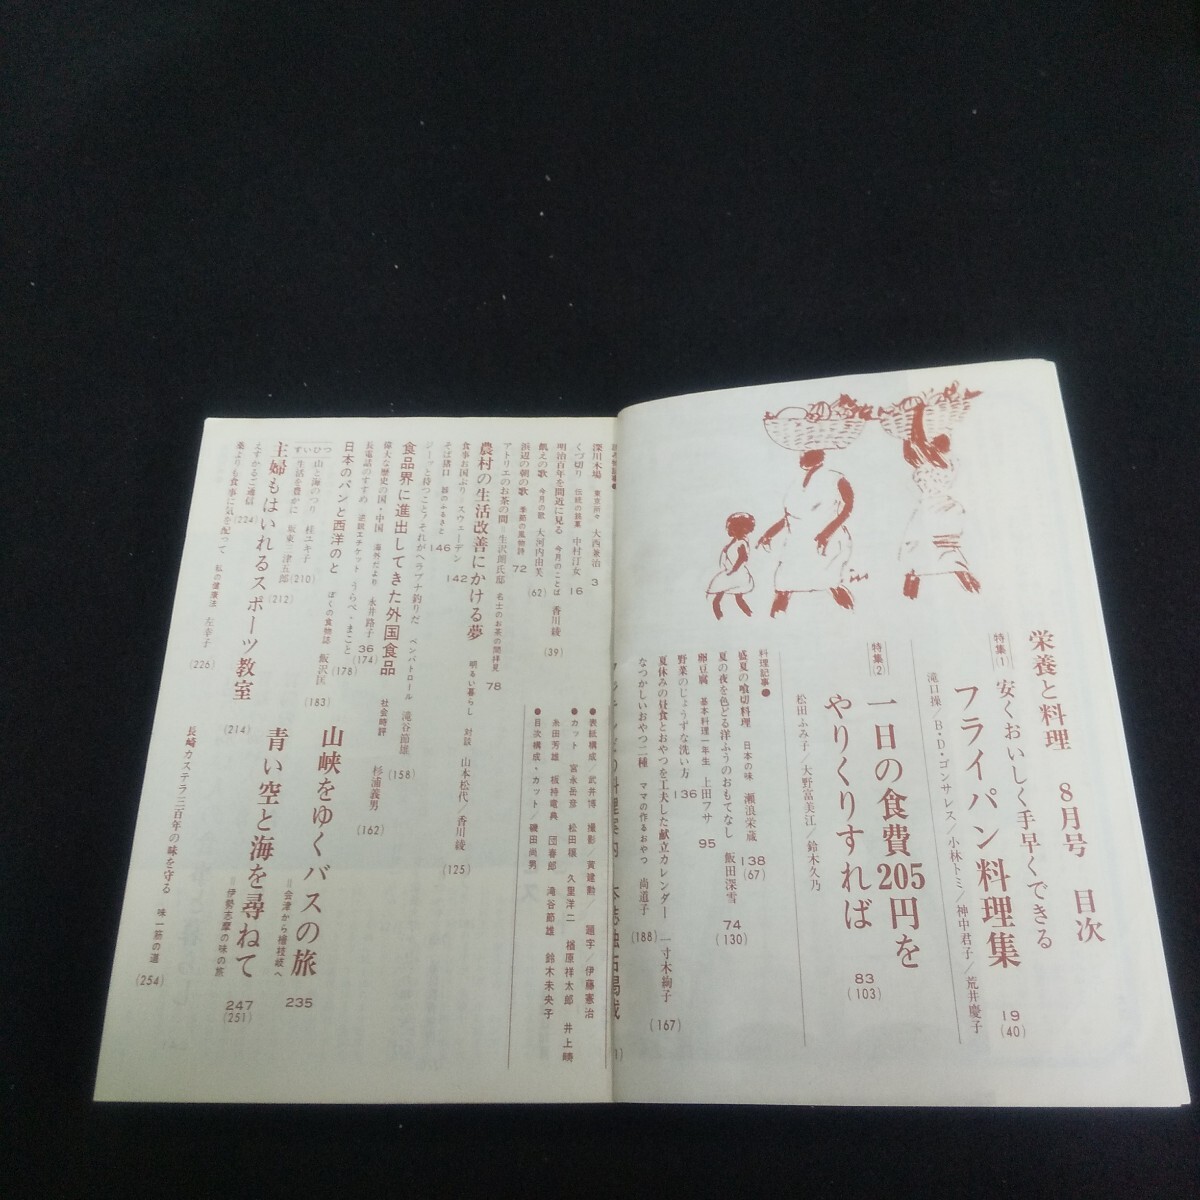 栄養と料理 8月号 目次
特集(1) 安くおいしく手早くできる
フライパン料理集 19 (40)
滝口操/B・D・ゴンサレス/小林トミ/神中君子/荒井慶子
特集(2) 一日の食費205円を
やりくりすれば 83 (103)
松田ふみ子/大野富美江/鈴木久乃
料理記事●
盛夏の喰切料理 日本の味 瀬浪栄蔵 138 (67)
夏の夜を色どる洋ふうのおもてなし 飯田深雪 74 (130)
卵豆腐 基本料理一年生 上田フサ 95
野菜のじょうずな洗い方 136
夏休みの昼食とおやつを工夫した献立カレンダー 一寸木絢子 (167)
なつかしいおやつ二種 ママの作るおやつ 尚道子 (188)
深川木場 東京所々 大西兼治 3
くづ切り 伝統の銘菓 中村汀女 16
明治百年を間近に見る 今月のことば 香川綾 (39)
飢えの歌 今月の歌 大河内由芙 (62)
浜辺の朝の歌 季節の風物詩 72
アトリエのお茶の間=生沢朗氏邸 名士のお茶の間拝見 78
農村の生活改善にかける夢 明るい暮らし 対談 山本松代/香川綾 (125)
食事お国ぶり=スウェーデン 142
そば猪口 器のふるさと 146
ジーッと持つこと!それがヘラブナ釣りだ ペンパトロール 滝谷節雄 (158)
食品界に進出してきた外国食品 社会時評 杉浦義男 (162)
偉大な歴史の国・中国 海外だより 永井路子 36
長電話のすすめ 逆説エチケット うらべ・まこと (174)
日本のパンと西洋のと ぼくの食物誌 飯沢匡 (178)
(183)
ずいひつ
山と海のつり 桂ユキ子 (210)
生活を豊かに 坂東三津五郎 (212)
主婦もはいれるスポーツ教室 (214)
えすかるご通信 (224)
薬よりも食事に気を配って 私の健康法 左幸子 (226)
●表紙構成/武井博 撮影/黄建勲/ 題字/伊藤憲治
●カット 宮永岳彦 松田穰 久里洋二 楢原祥太郎 井上疇
糸田芳雄 板持竜典 団春郎 滝谷節雄 鈴木未央子
●目次構成・カット/磯田尚男
山峡をゆくバスの旅 =会津から檜枝岐へ 235
青い空と海を尋ねて =伊勢志摩の味の旅 247 (251)
長崎カステラ三百年の味を守る 味一筋の道 (254)